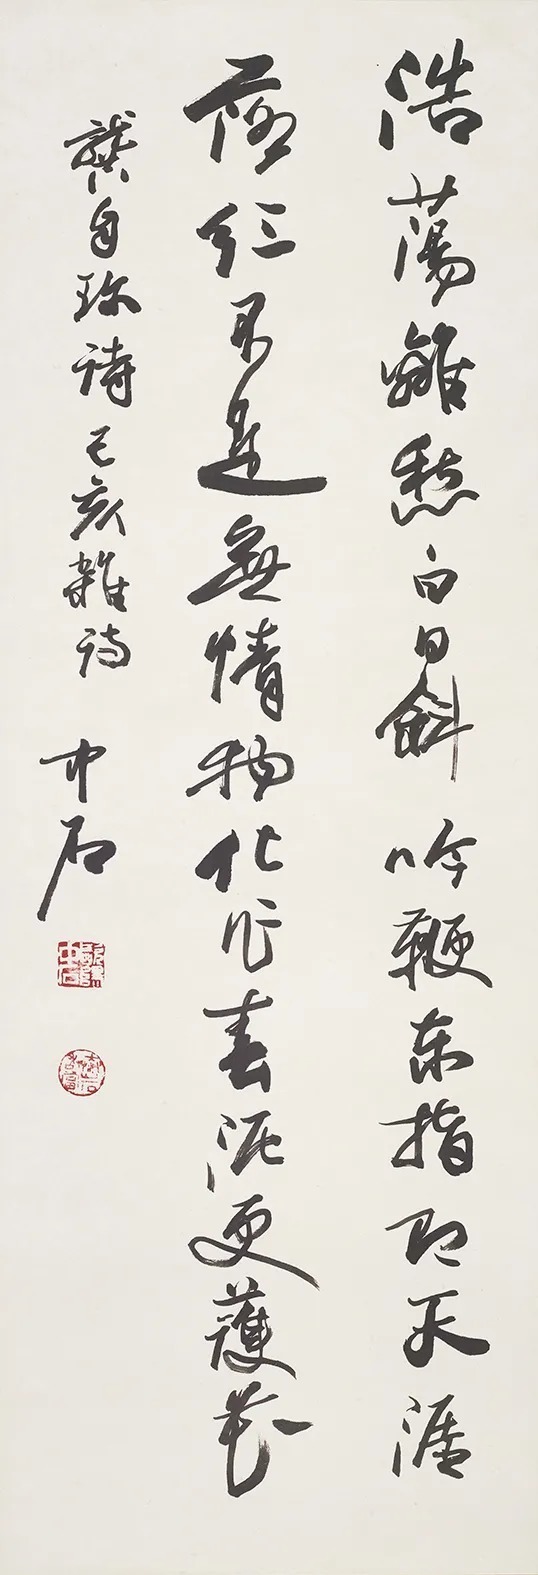 浩蕩離愁白日斜吟鞭东指即天涯
落红不是無情物化作春泥更護花
龔自珍诗己亥雜诗 中石
歐陽中石